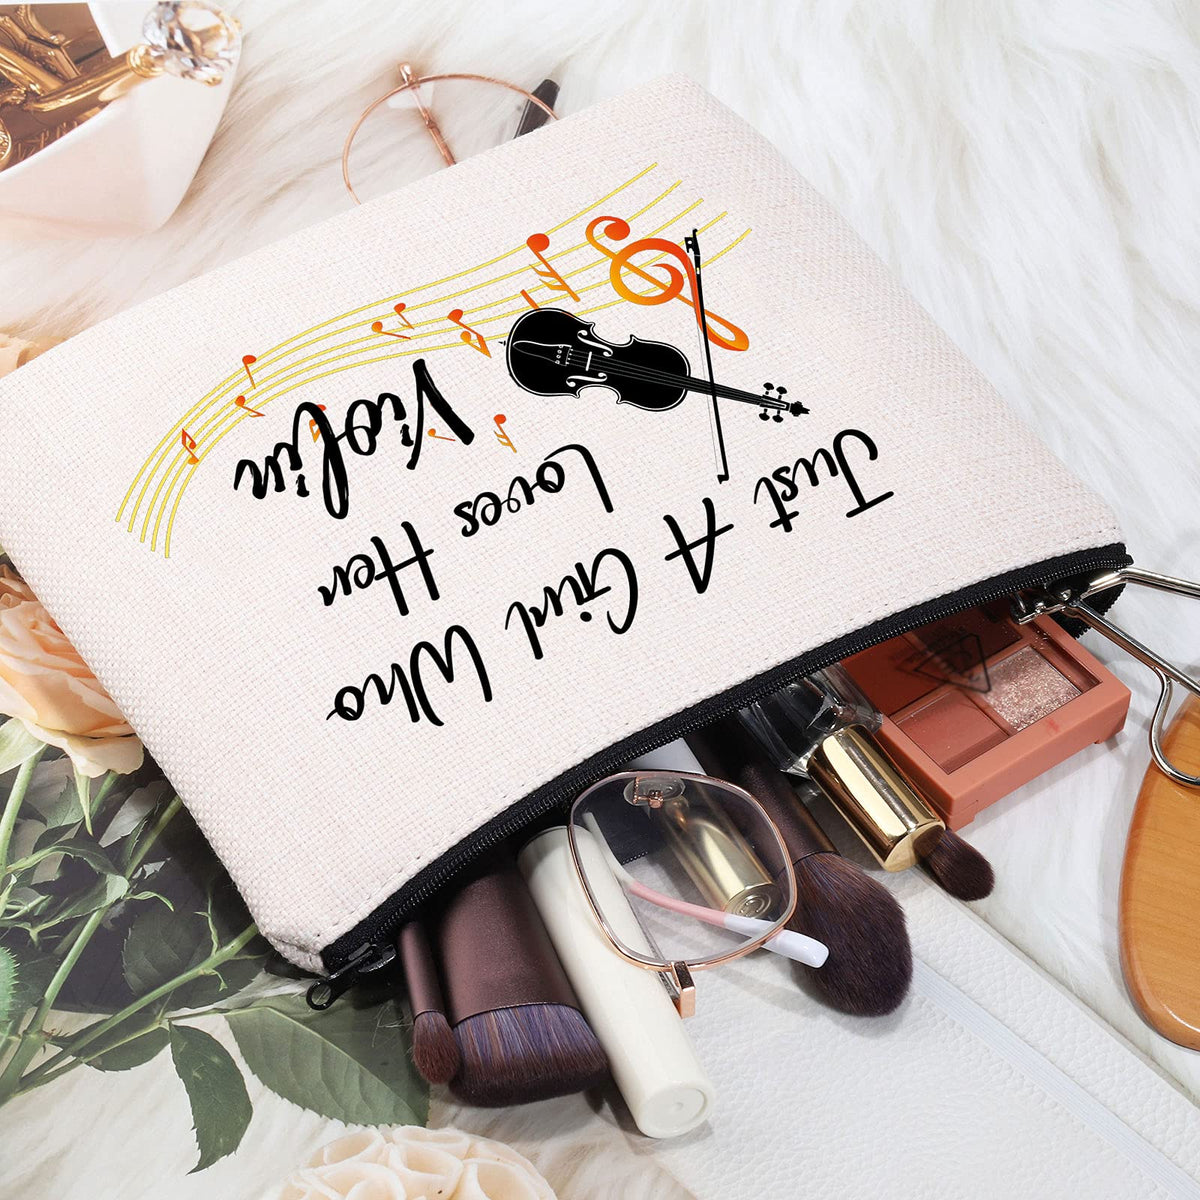 Just A Girl Who
Loves Her
Violin